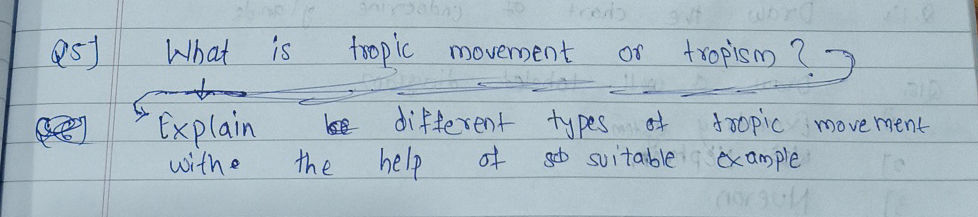 Q5] What is tropic movement or tropism?
Explain different types of tropic movement
withe the help of suitable example